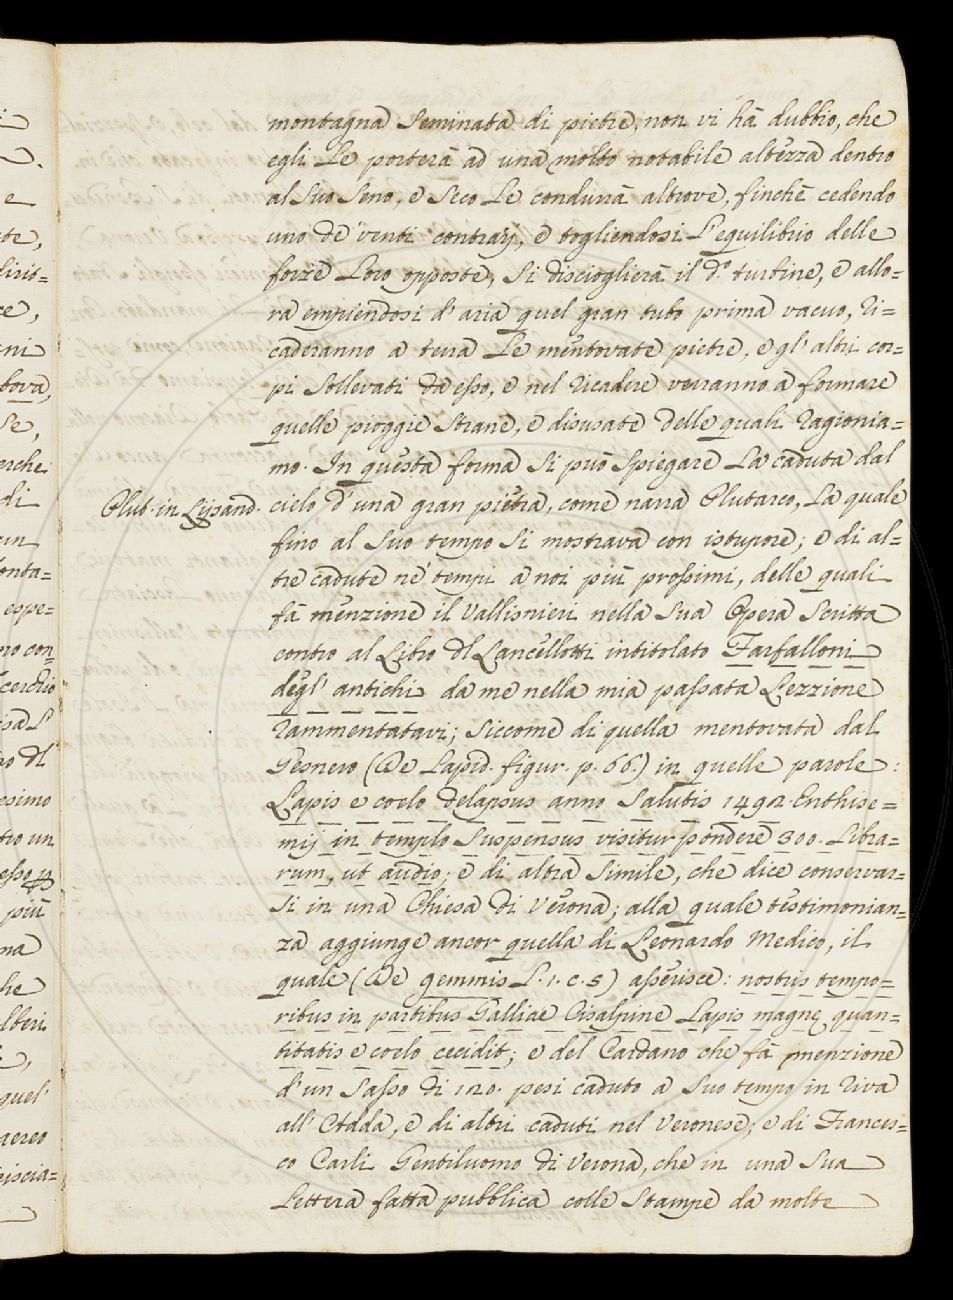 montagna seminata di pietre, non vi hà dubbio, che
egli le porterà ad una molto notabile altezza dentro
al suo seno, e seco le condurrà altrove, finchè cedendo
uno de' venti contrarj, e togliendosi l'equilibrio delle
forze loro opposte, si discioglierà il d.º turbine, e allo=
ra empiendosi d'aria quel gran tubo prima vacuo, ri=
caderanno a terra le mentovate pietre, e gl'altri cor=
pi sollevati da esso, e nel ricadere verranno a formare
quelle pioggie strane, e disusate delle quali ragionia=
mo. In questa forma si può spiegare la caduta dal
Plut. in Lisand. cielo d'una gran pietra, come narra Plutarco, la quale
fino al suo tempo si mostrava con istupore; e di al=
tre cadute ne' tempi a noi più prossimi, delle quali
fà menzione il Vallisnieri nella sua Opera scritta
contro al Libro del Lancellotti intitolato Farfalloni
degl'antichi da me nella mia passata Lezzione
rammentatavi; siccome di quella mentovata dal
Gesnero (De Lapid. figur. p. 66.) in quelle parole:
Lapis e coelo delapsus anno Salutis 1492. Enthise=
mij in templo suspensus visitur pondere 300. Libra=
rum, ut audio; e di altra simile, che dice conservar=
si in una Chiesa di Verona; alla quale testimonian=
za aggiunge ancor quella di Leonardo Medico, il
quale (De gemmis L. 1. c. 5) asserisce: nostris tempo=
ribus in partibus Galliae Cisalpine Lapis magnę quan=
titatis e coelo cecidit; e del Cardano che fà menzione
d'un sasso di 120. pesi caduto a suo tempo in riva
all'Adda, e di altri caduti nel Veronese; e di Frances=
co Carli Gentiluomo di Verona, che in una sua
Lettera fatta pubblica colle stampe da molte